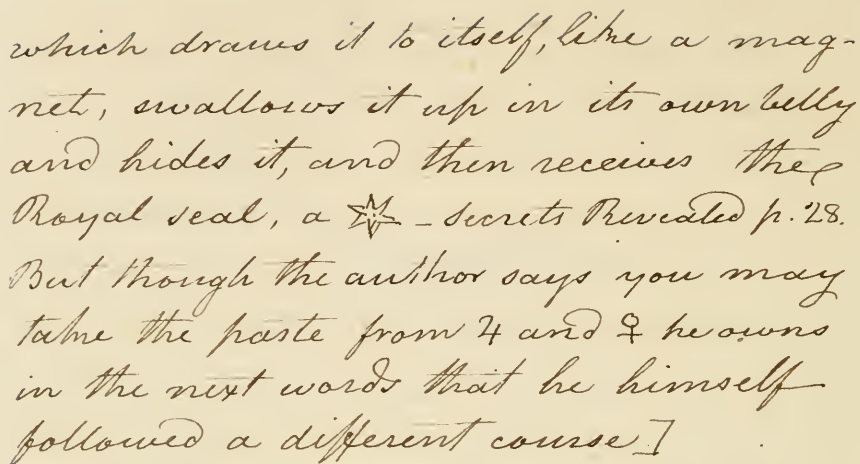 which draws it to itself, like a mag-
net, swallows it up in its own belly
and hides it, and then receives the
Royal seal, a ☆ - Secrets Revealed p. 28.
But though the author says you may
take the paste from ♃ and ♀ he owns
in the next words that he himself
followed a different course]